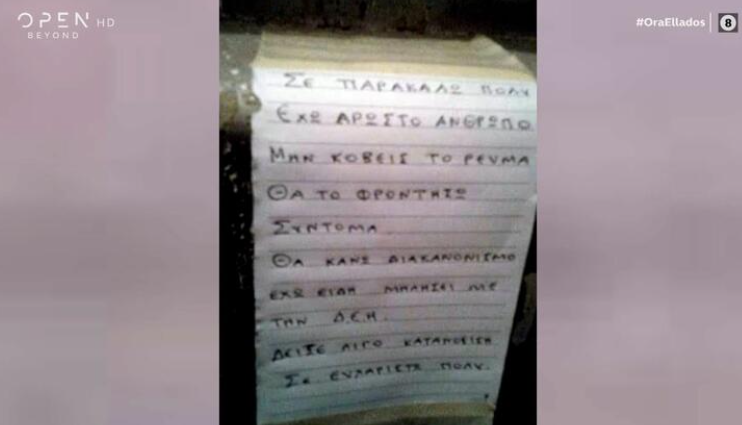 OPEN HD
BEYOND
#OraEllados
8
ΣΕ ΠΑΡΑΚΑΛΩ ΠΟΛΥ
ΕΧΩ ΑΡΩΣΤΟ ΑΝΘΡΩΠΟ
ΜΗΝ ΚΟΒΕΙΣ ΤΟ ΡΕΥΜΑ
ΘΑ ΤΟ ΦΡΟΝΤΗΣΩ
ΣΥΝΤΟΜΑ.
ΘΑ ΚΑΝΩ ΔΙΑΚΑΝΟΝΙΣΜΟ
ΕΧΩ ΕΙΔΗ ΜΗΛΗΣΕΙ ΜΕ
ΤΗΝ Δ.Ε.Η.
ΔΕΙΞΕ ΛΙΓΟ ΚΑΤΑΝΟΕΙΣΗ
ΣΕ ΕΥΧΑΡΙΣΤΩ ΠΟΛΥ.